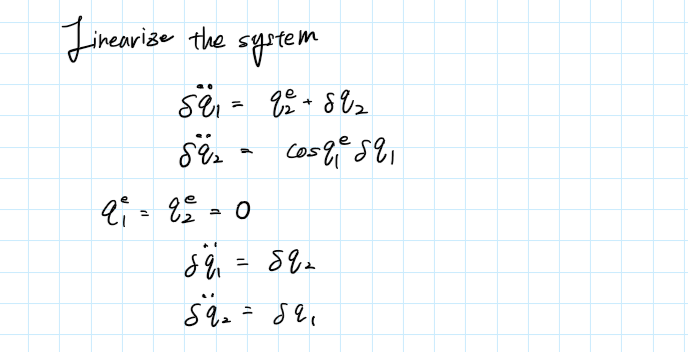 Linearize the system
δq̈₁ = q₂ᵉ + δq₂
δq̈₂ = cosq₁ᵉ δq₁
q₁ᵉ = q₂ᵉ = 0
δq̈₁ = δq₂
δq̈₂ = δq₁